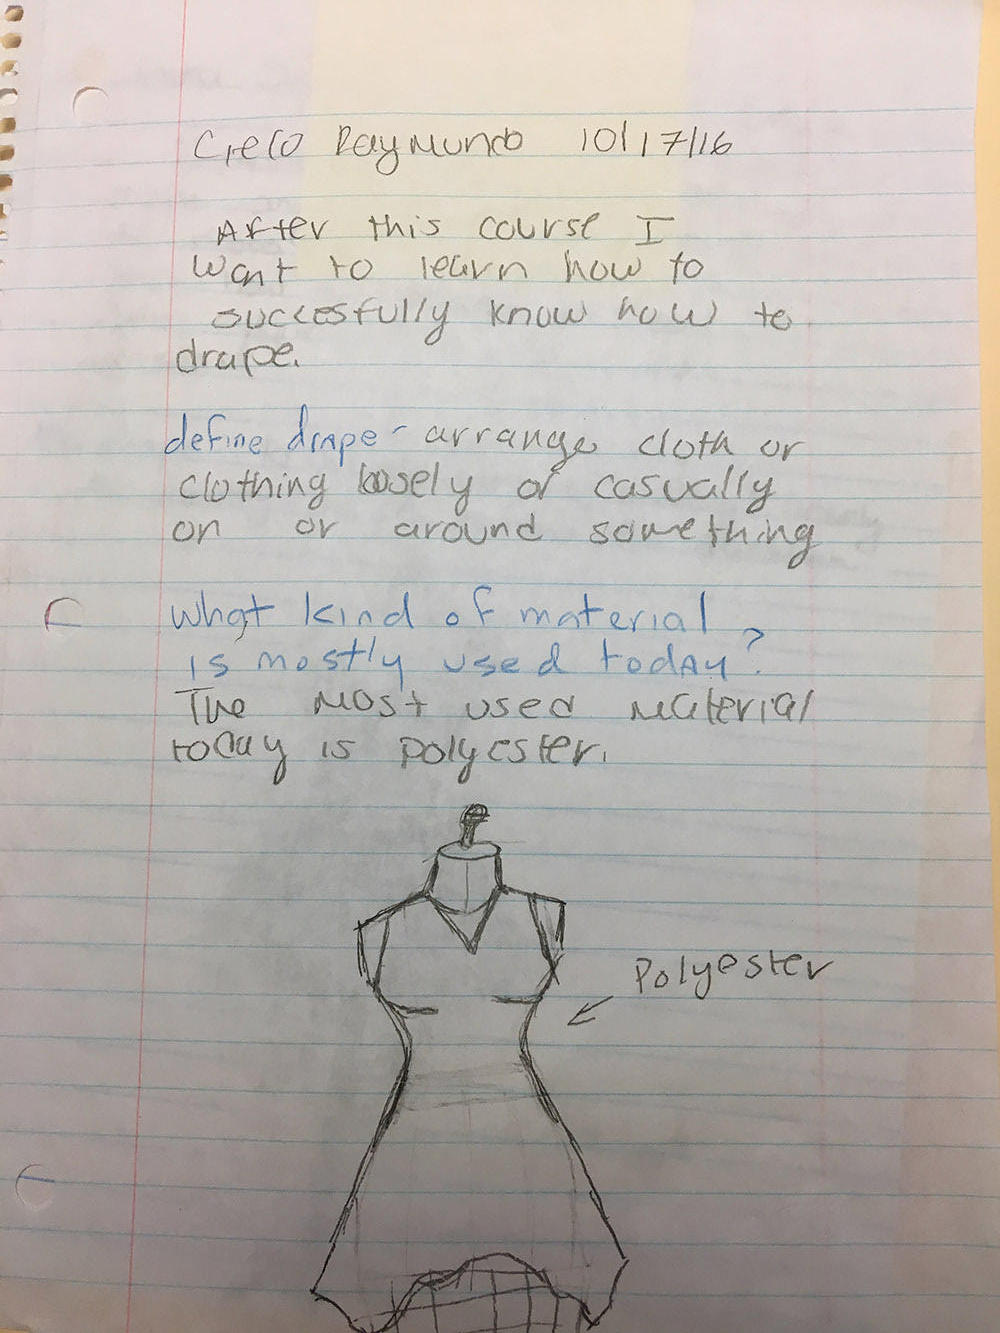 Cielo Raymundo 10/17/16
After this course I
want to learn how to
succesfully know how to
drape.
define drape - arrange cloth or
clothing loosely or casually
on or around something
What kind of material
is mostly used today?
The most used material
today is polyester.
Polyester